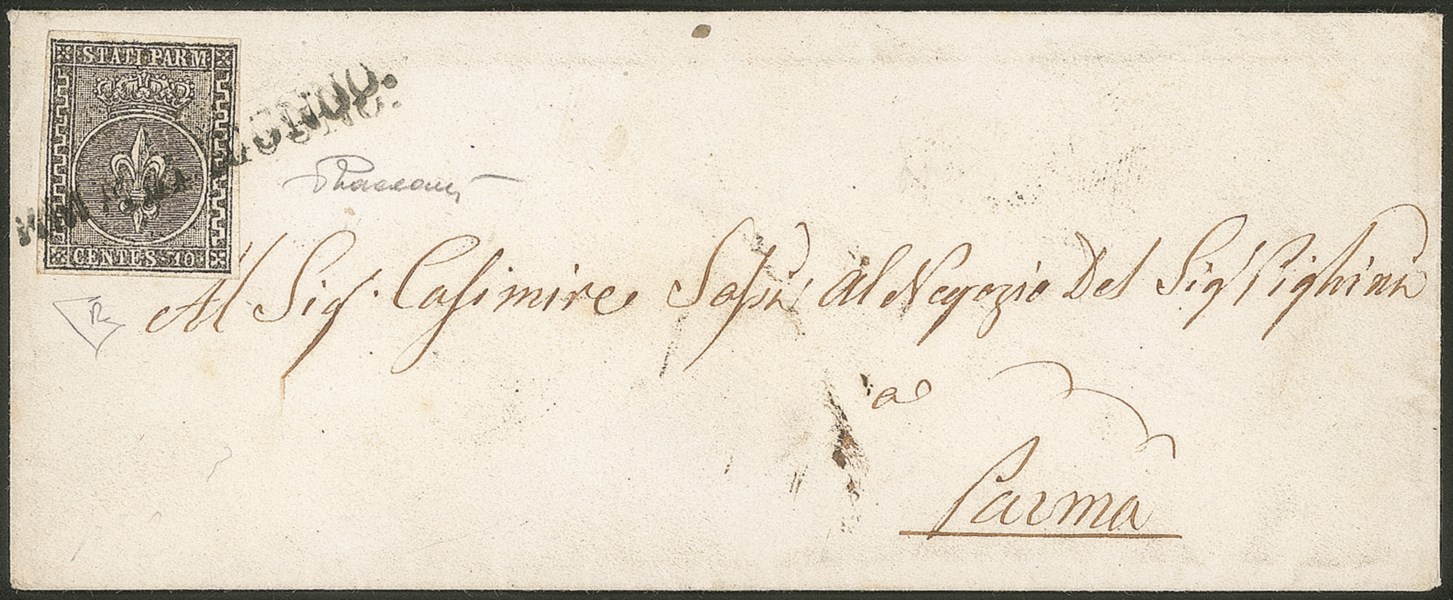 STATI PARM
CENTES 10
Al Sig.r Casimire al Negozio Del Sig.r Pighini
a
Parma